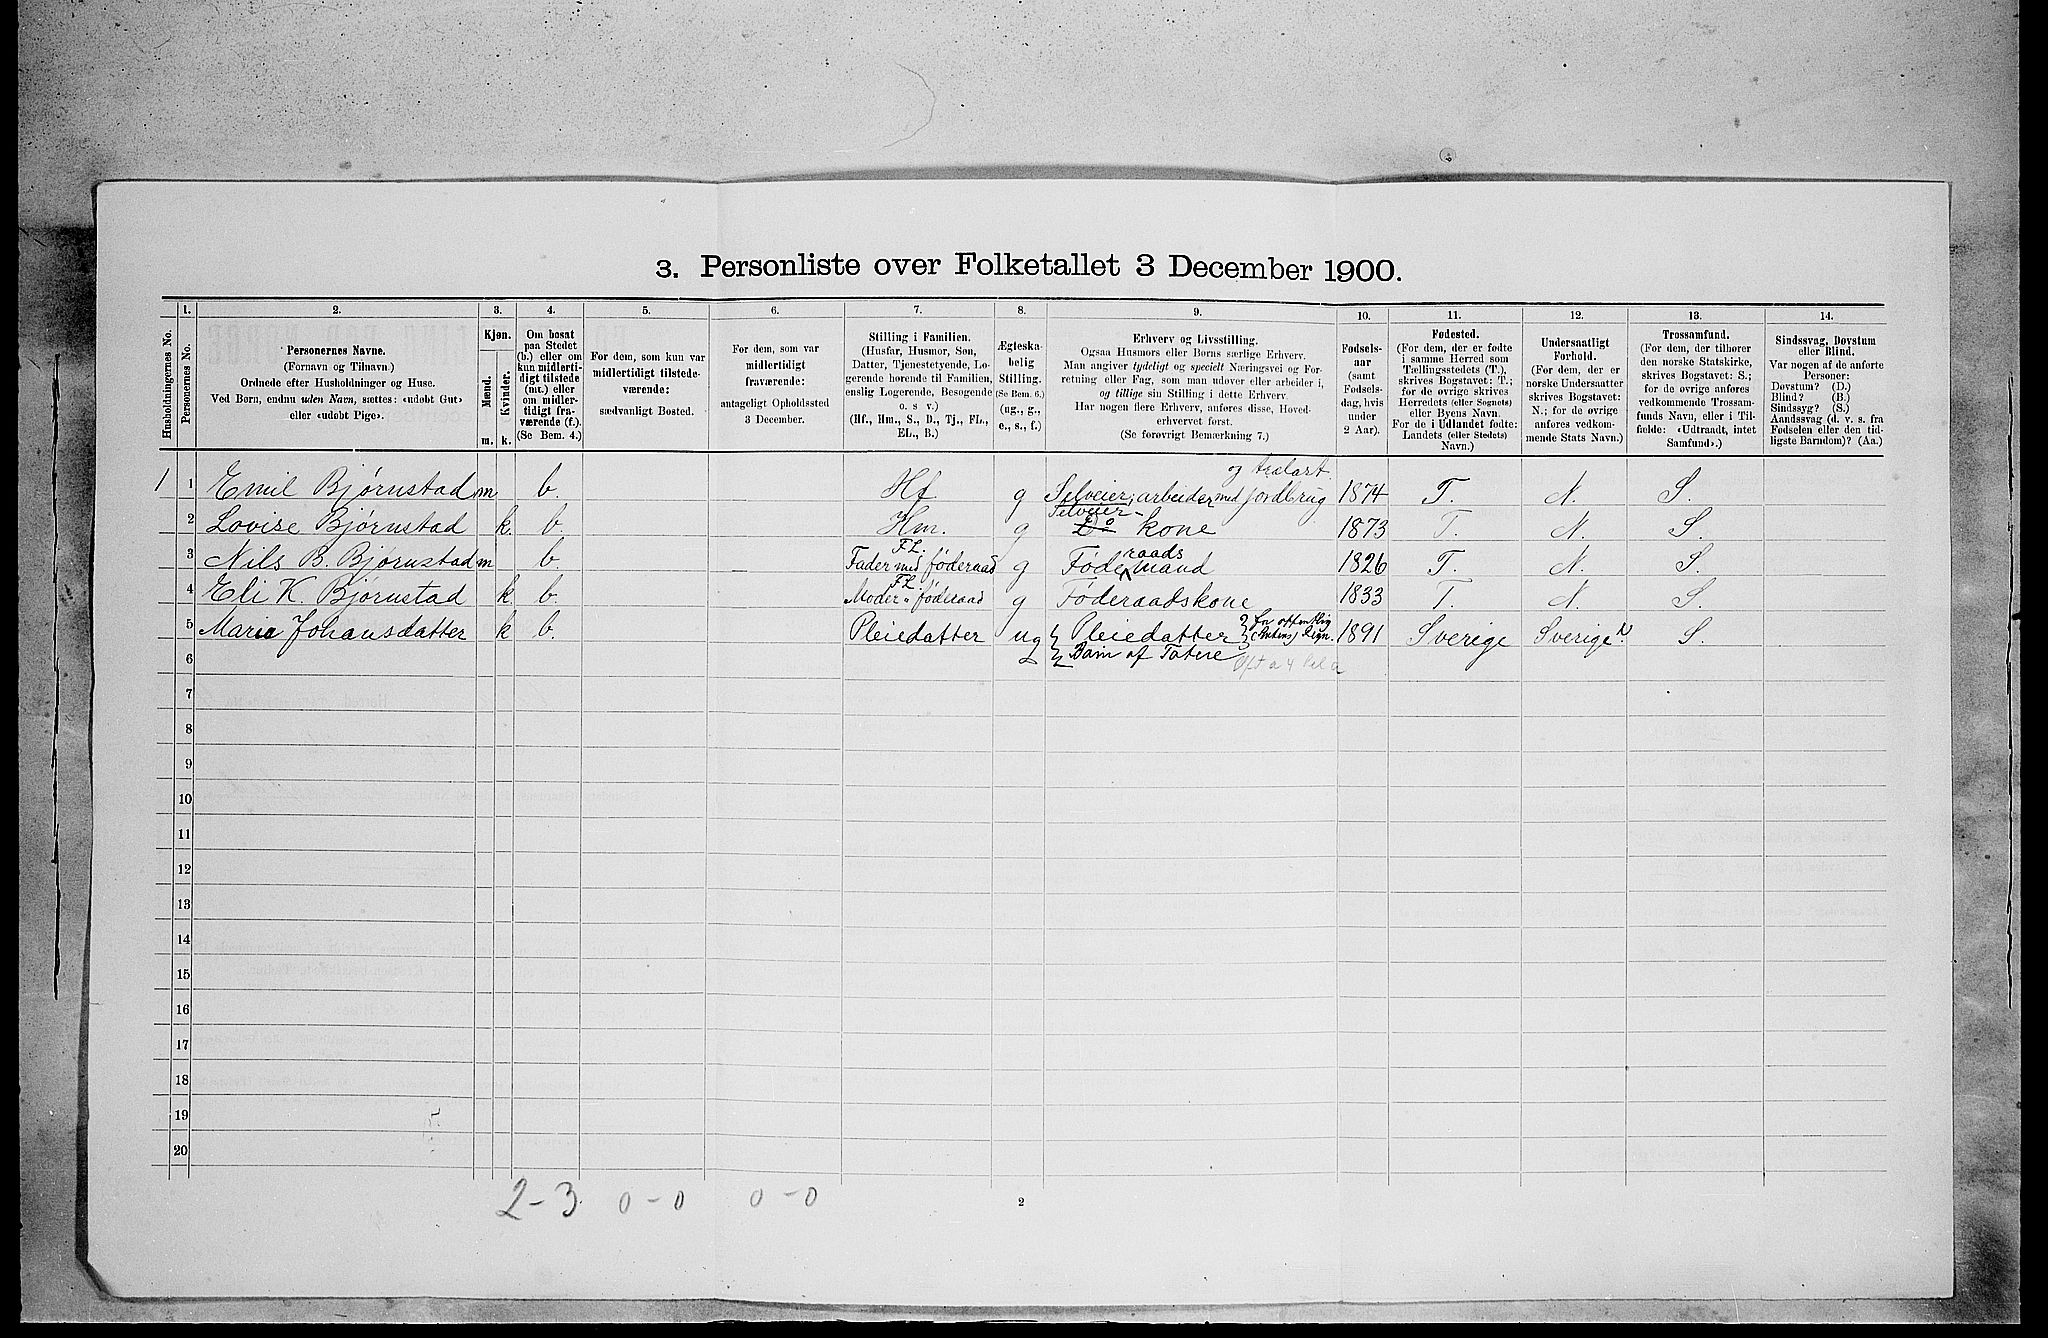 3. Personliste over Folketallet 3 December 1900.
1. 2. 3. 4. 5. 6. 7. 8. 9. 10. 11. 12. 13. 14.
Husholdningernes No.
Personernes No.
Personernes Navne.
(Fornavn og Tilnavn.)
Ordnede efter Husholdninger og Huse.
Ved Børn, endnu uden Navn, sættes: «udøbt Gut»
eller «udøbt Pige».
Kjøn.
Mænd.
Kvinder.
m. k.
Om bosat
paa Stedet
(b.) eller om
kun midlerti-
digt tilstede
(mt.) eller
om midler-
tidigt fra-
værende (f.).
(Se Bem. 4.)
For dem, som kun var
midlertidigt tilstede-
værende:
sædvanligt Bosted.
For dem, som var
midlertidigt
fraværende:
antageligt Opholdssted
3 December.
Stilling i Familien.
(Husfar, Husmor, Søn,
Datter, Tjenestetyende, Lo-
gerende hørende til Familien,
enslig Logerende, Besøgende
o. s v.)
(Hf., Hm., S., D., Tj., FL.,
EL., B.)
Ægteska-
belig
Stilling.
(Se Bem. 6.)
(ug., g.,
e., s., f.)
Erhverv og Livsstilling.
Ogsaa Husmors eller Børns særlige Erhverv.
Man angiver tydeligt og specielt Næringsvei og For-
retning eller Fag, som man udøver eller arbeider i,
og tillige sin Stilling i dette Erhverv.
Har nogen flere Erhverv, anføres disse, Hoved-
erhvervet først.
(Se forøvrigt Bemærkning 7.)
Fødsels-
aar
(samt
Fødsels-
dag, hvis
under
2 Aar).
Fødested.
(For dem, der er fødte
i samme Herred som
Tællingsstedets (T.),
skrives Bogstavet: T.;
for de øvrige skrives
Herredets (eller Sognets)
eller Byens Navn.
For de i Udlandet fødte:
Landets (eller Stedets)
Navn.)
Undersaatligt
Forhold.
(For dem, der er
norske Undersaatter
skrives Bogstavet:
N.; for de øvrige
anføres vedkom-
mende Stats Navn.)
Trossamfund.
(For dem, der tilhører
den norske Statskirke,
skrives Bogstavet: S.;
for de øvrige anføres
vedkommende Trossam-
funds Navn, eller i Til-
fælde: «Udtraadt, intet
Samfund».)
Sindssvag, Døvstum
eller Blind.
Var nogen af de anførte
Personer:
Døvstum? (D.)
Blind? (B.)
Sindssyg? (S.)
Aandssvag (d. v. s. fra
Fødselen eller den tid-
ligste Barndom)? (Aa.)
og trælast.
1 1 Emil Bjørnstad m b. Hf g Selveier, arbeider med jordbrug 1874 T. N. S.
Selveier-
2 Lovise Bjørnstad k. b. Hm. g Do kone 1873 T. N. S.
FL. raads
3 Nils B. Bjørnstad m b. Fader med føderaad g Føde mand 1826 T. N. S.
FL
4 Eli K. Bjørnstad k. b. Moder " føderaad g Føderaadskone 1833 T. N. S.
for offentlig
5 Maria Johansdatter k b. Pleiedatter ug Pleiedatter 1891 Sverige Sverige N. S.
6 Barn af Tatere
7
8
9
10
11
12
13
14
15
16
17
18
19
20
2-3 0-0 0-0
2